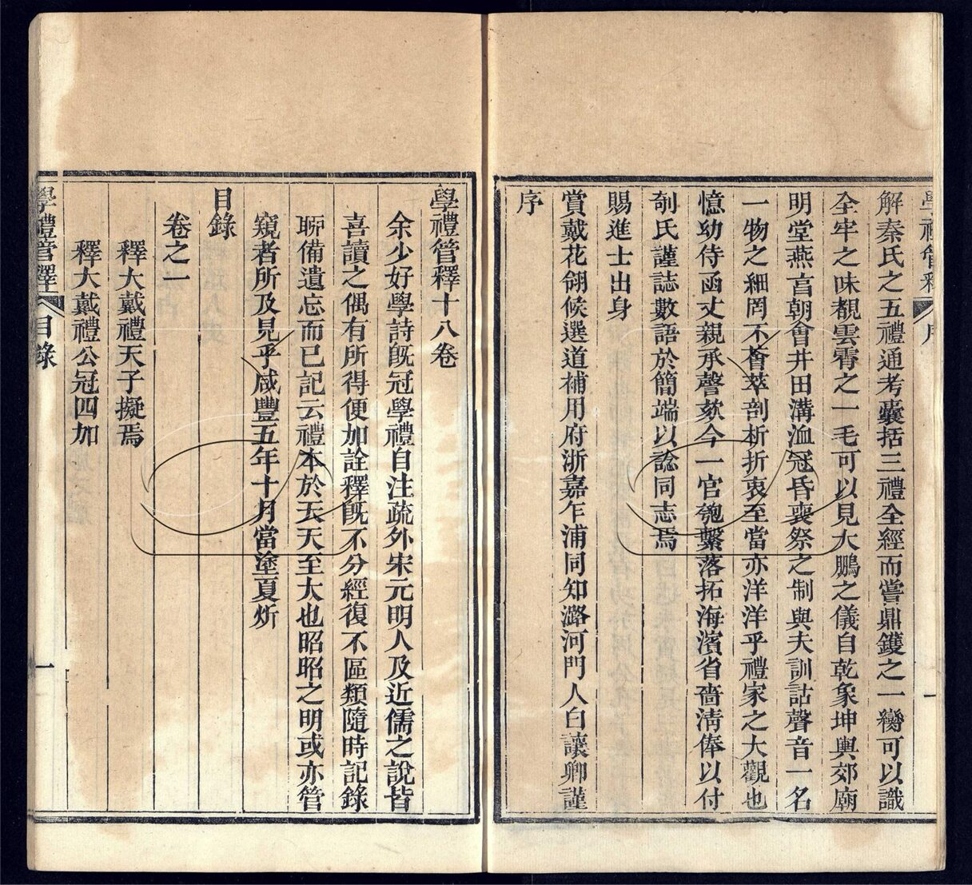 學禮管釋
序
一
解秦氏之五禮通考囊括三禮全經而嘗鼎鑊之一臠可以識
全牢之味覩雲霄之一毛可以見大鵬之儀自乾象坤輿郊廟
明堂燕言朝會井田溝洫冠昏喪祭之制與夫訓詁聲音一名
一物之細罔不薈萃剖析折衷至當亦洋洋乎禮家之大觀也
憶幼侍函丈親承謦欬今一官匏繫落拓海濱省嗇淸俸以付
剞氏謹誌數語於簡端以諗同志焉
賜進士出身
賞戴花翎候選道補用府浙嘉乍浦同知潞河門人白讓卿謹
序
學禮管釋十八卷
余少好學詩旣冠學禮自注疏外宋元明人及近儒之說皆
喜讀之偶有所得便加詮釋旣不分經復不區類隨時記錄
聊備遺忘而已記云禮本於天天至大也昭昭之明或亦管
窺者所及見乎咸豐五年十月當塗夏炘
目錄
卷之一
釋大戴禮天子擬焉
釋大戴禮公冠四加
學禮管釋
目錄
一